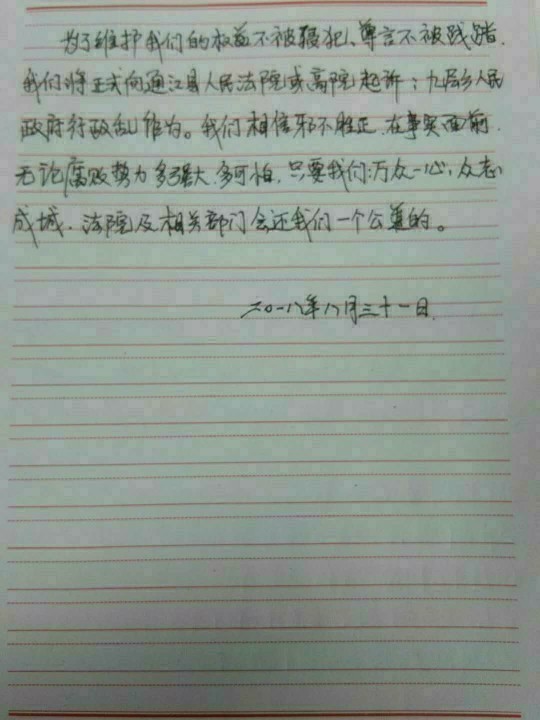 为了维护我们的权益不被侵犯、尊言不被践踏.
我们将正式向通江县人民法院或高院起诉：九层乡人民
政府行政乱作为。我们相信邪不胜正.在事实面前.
无论腐败势力多强大.多可怕.只要我们万众一心,众志
成城.法院及相关部门会还我们一个公道的。
二〇一八年八月三十一日.